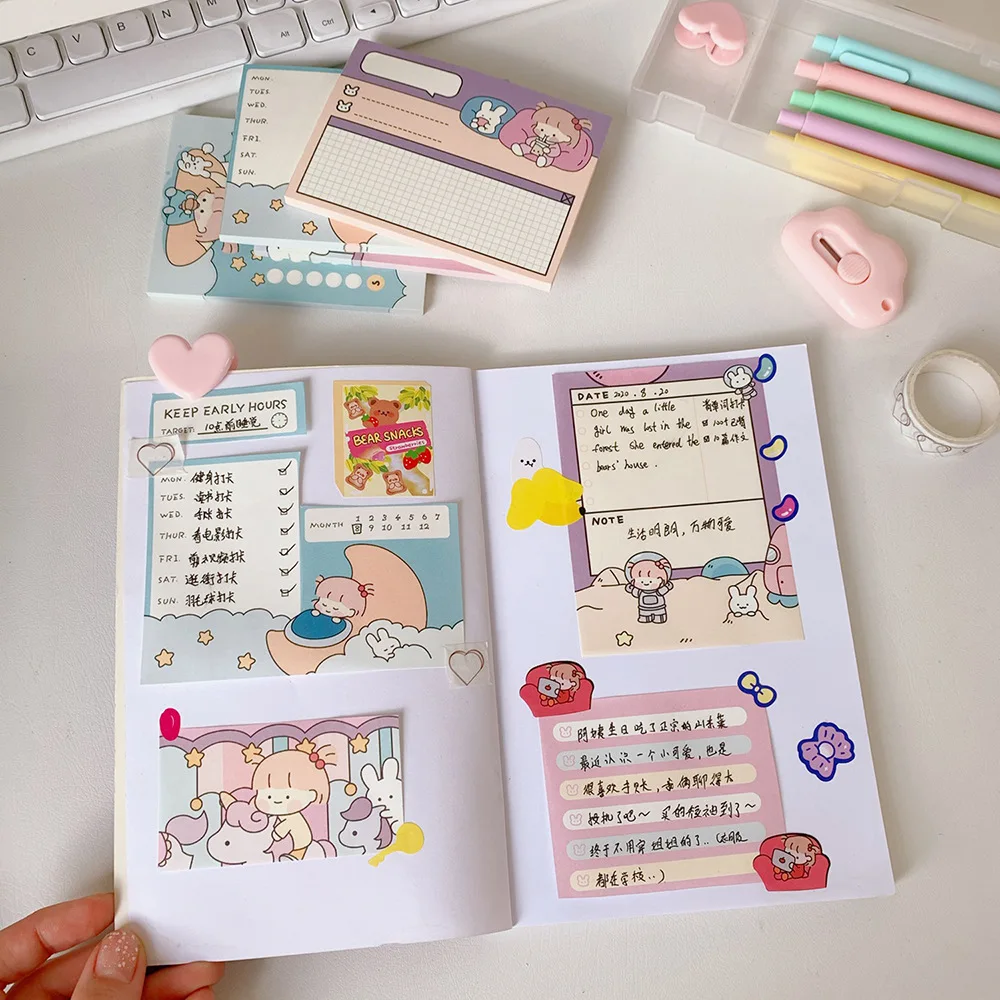 C
V
B
N
M
Alt
Ctrl
MON.
TUES.
WED.
THUR.
FRI.
SAT.
SUN.
S
KEEP EARLY HOURS
TARGET: 10点前睡觉
MON. 健身打卡
TUES. 读书打卡
WED. 打卡
THUR. 看电影打卡
FRI. 剪视频打卡
SAT. 逛街打卡
SUN. 羽毛球打卡
BEAR SNACKS
Strawberries
MONTH 1 2 3 4 5 6 7
8 9 10 11 12
DATE 2020. 8. 20
One day a little
girl was lost in the
forest she entered the
bears' house.
背单词打卡
100个已背
10篇作文
NOTE
生活明朗，万物可爱
阿姨生日吃了正宗的山东菜
最近认识一个小可爱，也是
很喜欢手账，我俩聊得太
投机了吧～ 买的短袖到了～
终于不用穿姐姐的了..（衣服
都在学校..）